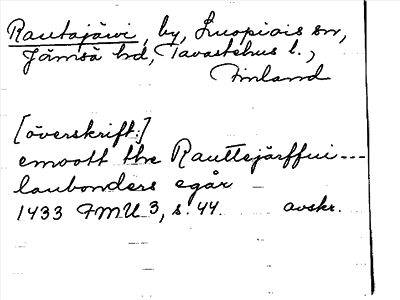 Rautajärvi, by, Luopiois sn,
Jämsä hd, Tavastehus l.,
Finland
[överskrift:]
emoott thre Rauttejärffui ---
laubonders egår
1433 FMU 3, s. 44. avskr.